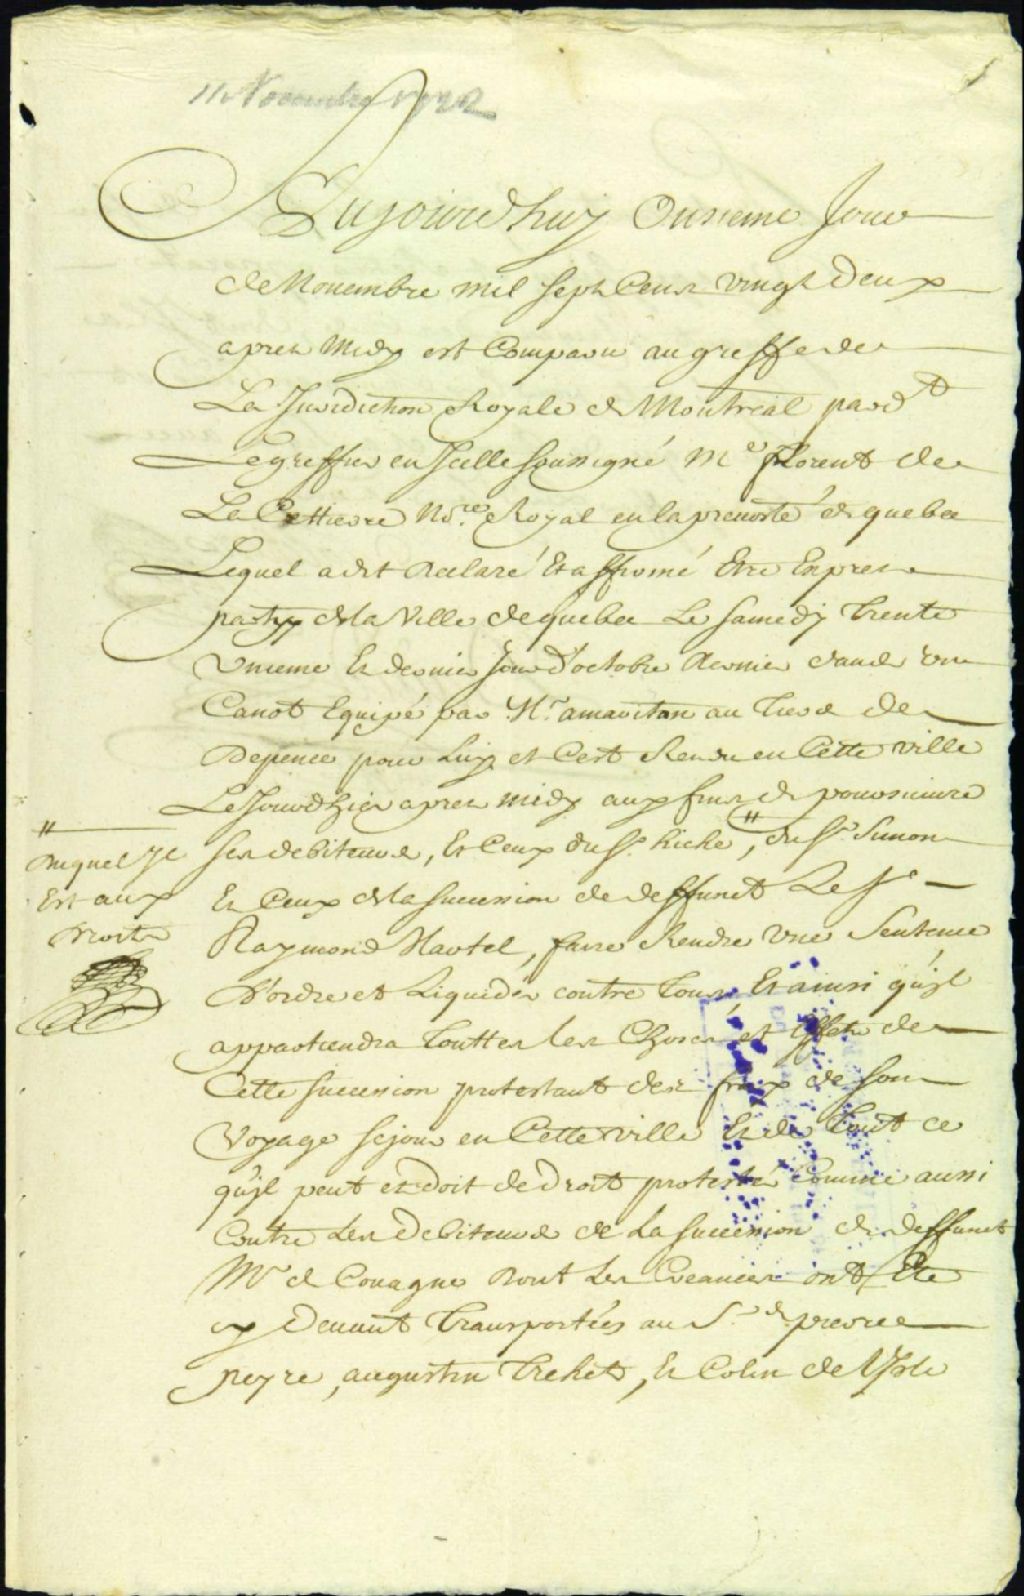 11 Novembre 1722
Aujourdhuy Onzieme Jour
de Nouembre mil sept Cens vingt Deux
apres Midy est Comparu au greffe de
La Jurediction Royale de Montreal pard.t
Le greffier en Jcelle soussigné M.e florent de
La Cettiere No.re Royal en la preuosté de quebec
Lequel a dit declaré Et affirmé Etre Expres
party de la Ville de quebec Le samedy trente
vnieme Et dernier Jour d'octobre dernier dans vn
Canot Equipé par M.r amariton au tiers de
Depence pour Luy et C'est Rendu en Cette ville
Le Jour d'hier apres midy aux fins de poursuiure
ses debiteurs, Et Ceux du S.r hiché, ⧺ du S.r Simon
Et Ceux de la succession de deffunct Le S.r
Raymond Martel, faire Rendre vne Sentence
D'ordre et Liquider contre tous, Et ainsi qu'jl
appartiendra touttes les Choses et Effets de
Cette succession protestant des fraix de son
Voyage sejour en Cette ville Et de tout ce
qu'jl peut et doit de droit protester Comme aussi
Contre Les Debiteurs de La succession de deffunct
M.r de Couagne dont Les Creances ont Eté
cy Deuant transportées au S.r de pierre
peyre, augustin trehet, Et Colin de L'Jsle
⧺
duquel Jl
Est aux
droits